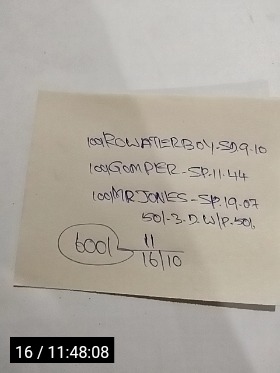 100/ROWATERBOY-SD9.10
100/GOMPER-SP.11.44
100/MRJONES-SP.19.07
50/-3.D.W/P.50/.
600/ 11
16/10
16 / 11:48:08